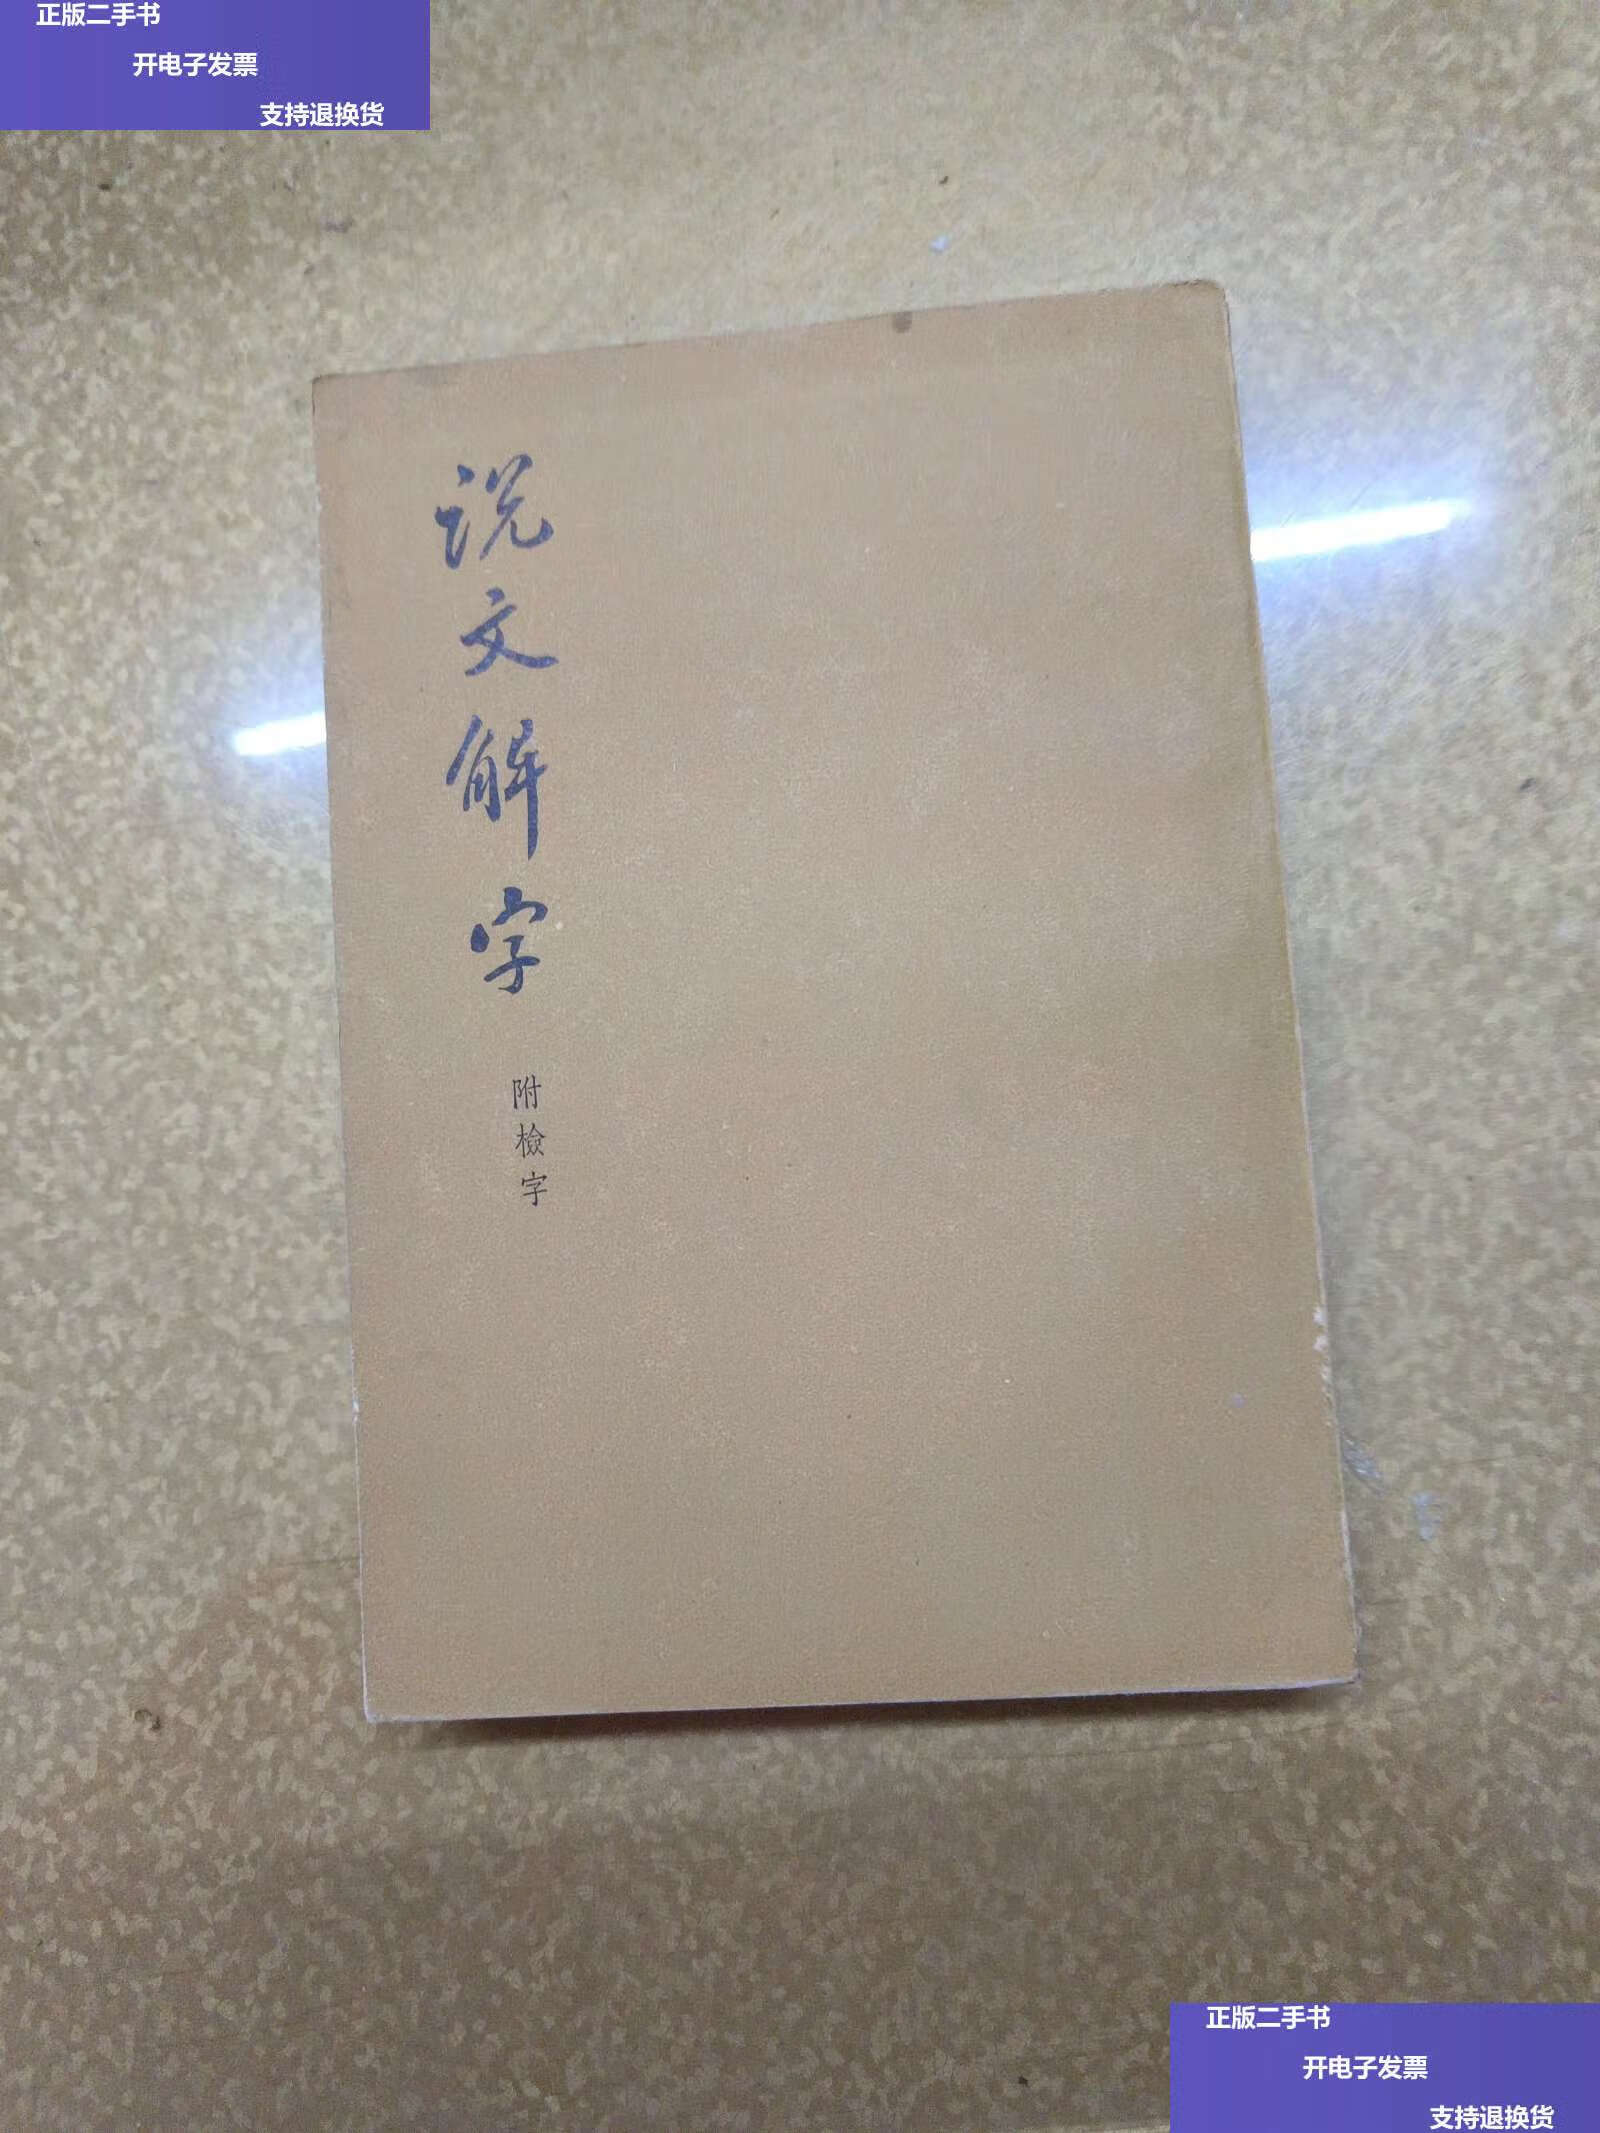 正版二手书
开电子发票
支持退换货
说文解字
附檢字
正版二手书
开电子发票
支持退换货